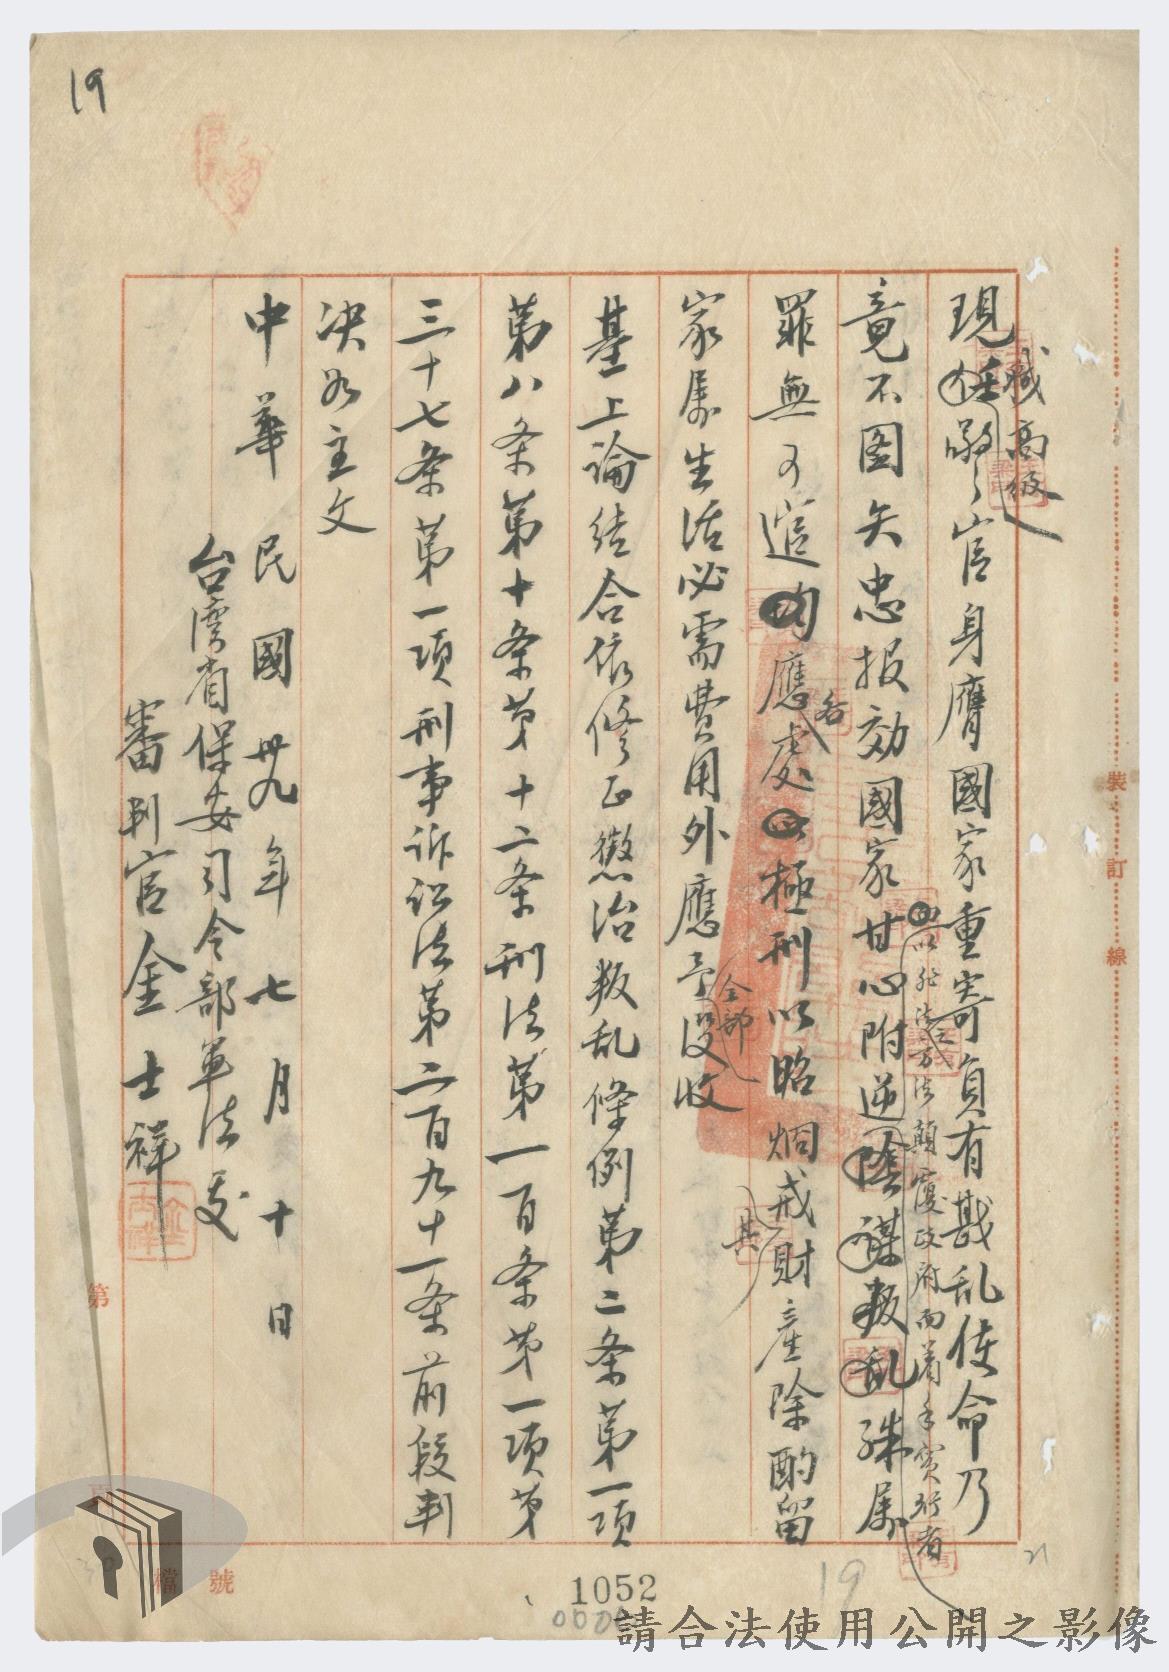 19
職高級
現任 官身膺國家重寄負有戡乱使命乃
以非法之方法顛覆政府而着手實行者
竟不图矢忠报效國家甘心附逆陰謀叛乱殊属
各
罪無可逭均應處以極刑以昭炯戒財產除酌留
其
全部
家属生活必需費用外應予没收
基上論结合依修正懲治叛乱條例第二条第一項
第八条第十条第十二条刑法第一百条第一項第
三十七条第一項刑事诉讼法第二百九十一条前段判
决如主文
中華民國卅九年七月十日
台湾省保安司令部軍法处
審判官金士祥
裝訂線
第
頁
檔號
21
19
1052
請合法使用公開之影像